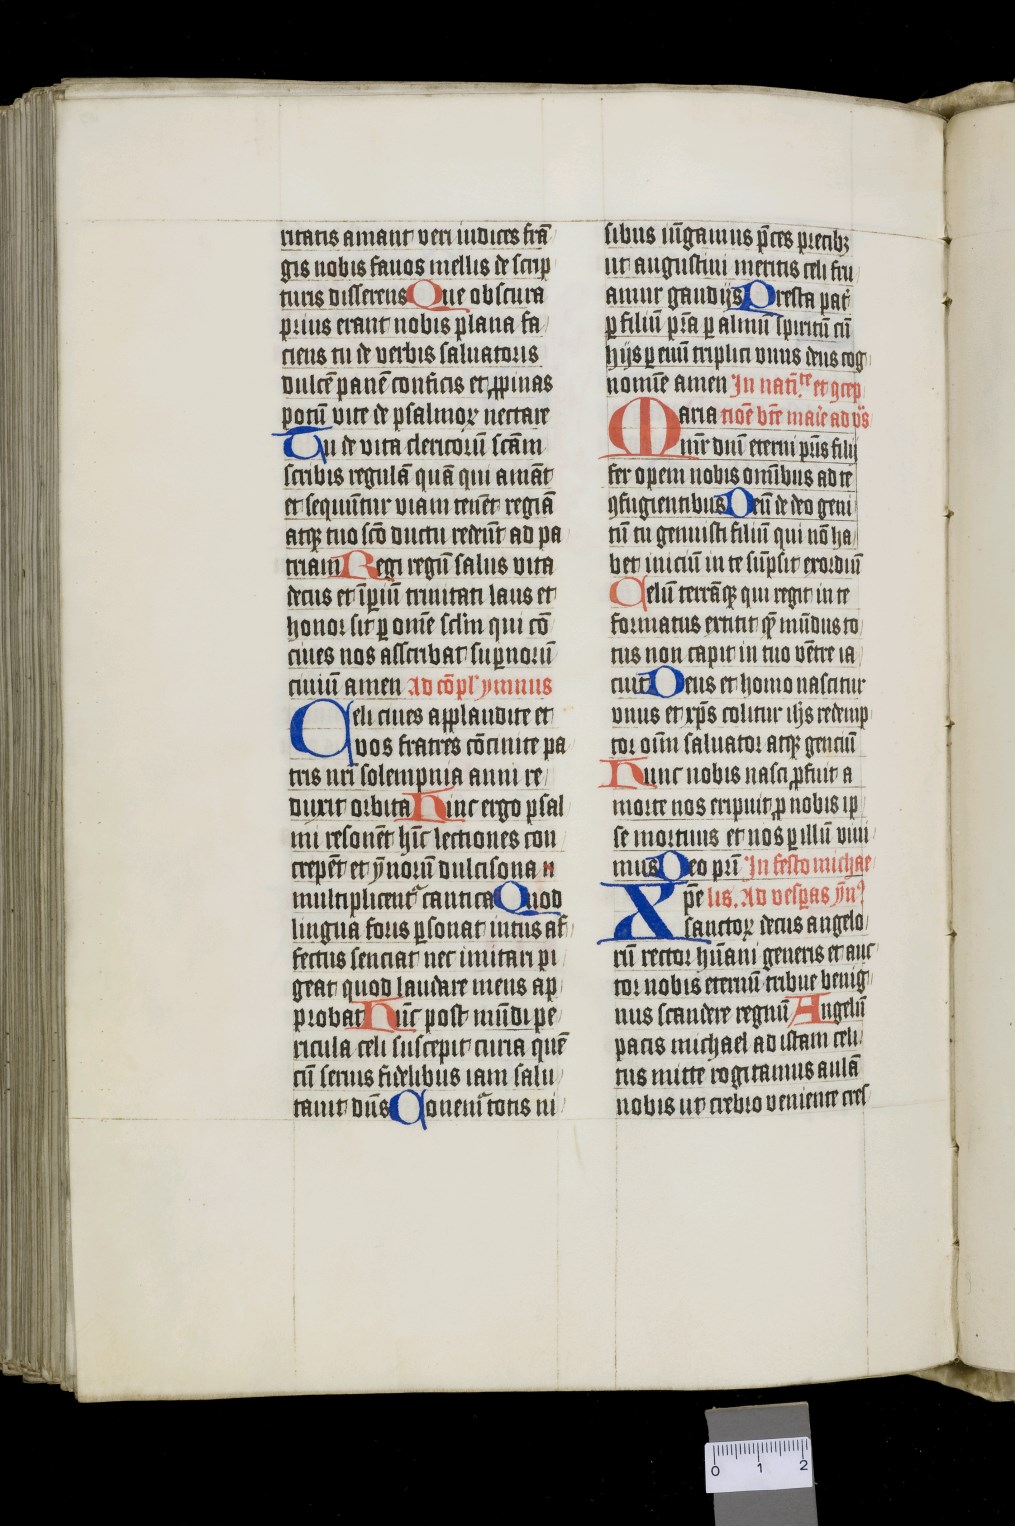 ritatis amant veri iudices frā
gis nobis favos mellis de scrip
turis disserens Que obscura
prius erant nobis plana fa
ciens tu de verbis salvatoris
dulcē panē conficis et ꝓpinas
potū vite de psalmoꝝ nectare
Tu de vita clericorū scām
scribis regulā quā qui amāt
et sequūtur viam tenēt regiā
atqꝫ tuo scō ductu redeūt ad pa
triam Regi regū salus vita
decus et īperiū trinitati laus et
honor sit ꝑ omē sclm qui cō
cives nos asscribat suꝑnorū
civiū amen Ad cōpl' ymnus
Celi cives applaudite et
vos fratres cōcinite pa
tris nrī solempnia anni re
duxit orbita Hinc ergo psal
mi resonēt hīc lectiones con
crepēt et ymnorū dulcisona
multiplicent cantica Quod
lingua foris ꝑsonat intus af
fectus senciat nec imitari pi
geat quod laudare mens ap
probat Hūc post mūdi pe
ricula celi suscepit curia quē
cū servis fidelibus iam salu
tavit dn̄s Conveni totis ni
sibus iūgamus p̄ces precibꝫ
ut augustini meritis celi fru
amur gaudijs Presta pat̄
ꝑ filiū pr̄a ꝑ almū spiritū cū
hijs ꝑ evū triplici vnus deus cog
nomīe amen In nati.te et ɔcep
Maria tiōe bt̄e marie ad vs̄
mr̄ dnī eterni pr̄is filij
fer opem nobis omībus ad te
ɔfugientibus Deū de deo geni
tū tu genuisti filiū qui nō ha
bet iniciū in te sūpsit exordiū
Celū terrāqꝫ qui regit in te
formatus extitit quē mūdus to
tus non capit in tuo vētre ia
cuit Deus et homo nascitur
vnus et xp̄s colitur ihs̄ redemp
tor oīm salvator atqꝫ genciū
Hunc nobis nasci ꝓfuit a
morte nos eripuit ꝓ nobis ip
se mortuus et nos ꝑ illū vivi
mus Deo prī In festo michae
Xpe lis. Ad vesꝑas yn̄
sanctoꝝ decus angelo
rū rector hūani generis et auc
tor nobis eternū tribue benig
nus scandere regnū Angelū
pacis michael ad istam celi
tus mitte rogitamus aulā
nobis ut crebro veniente cres